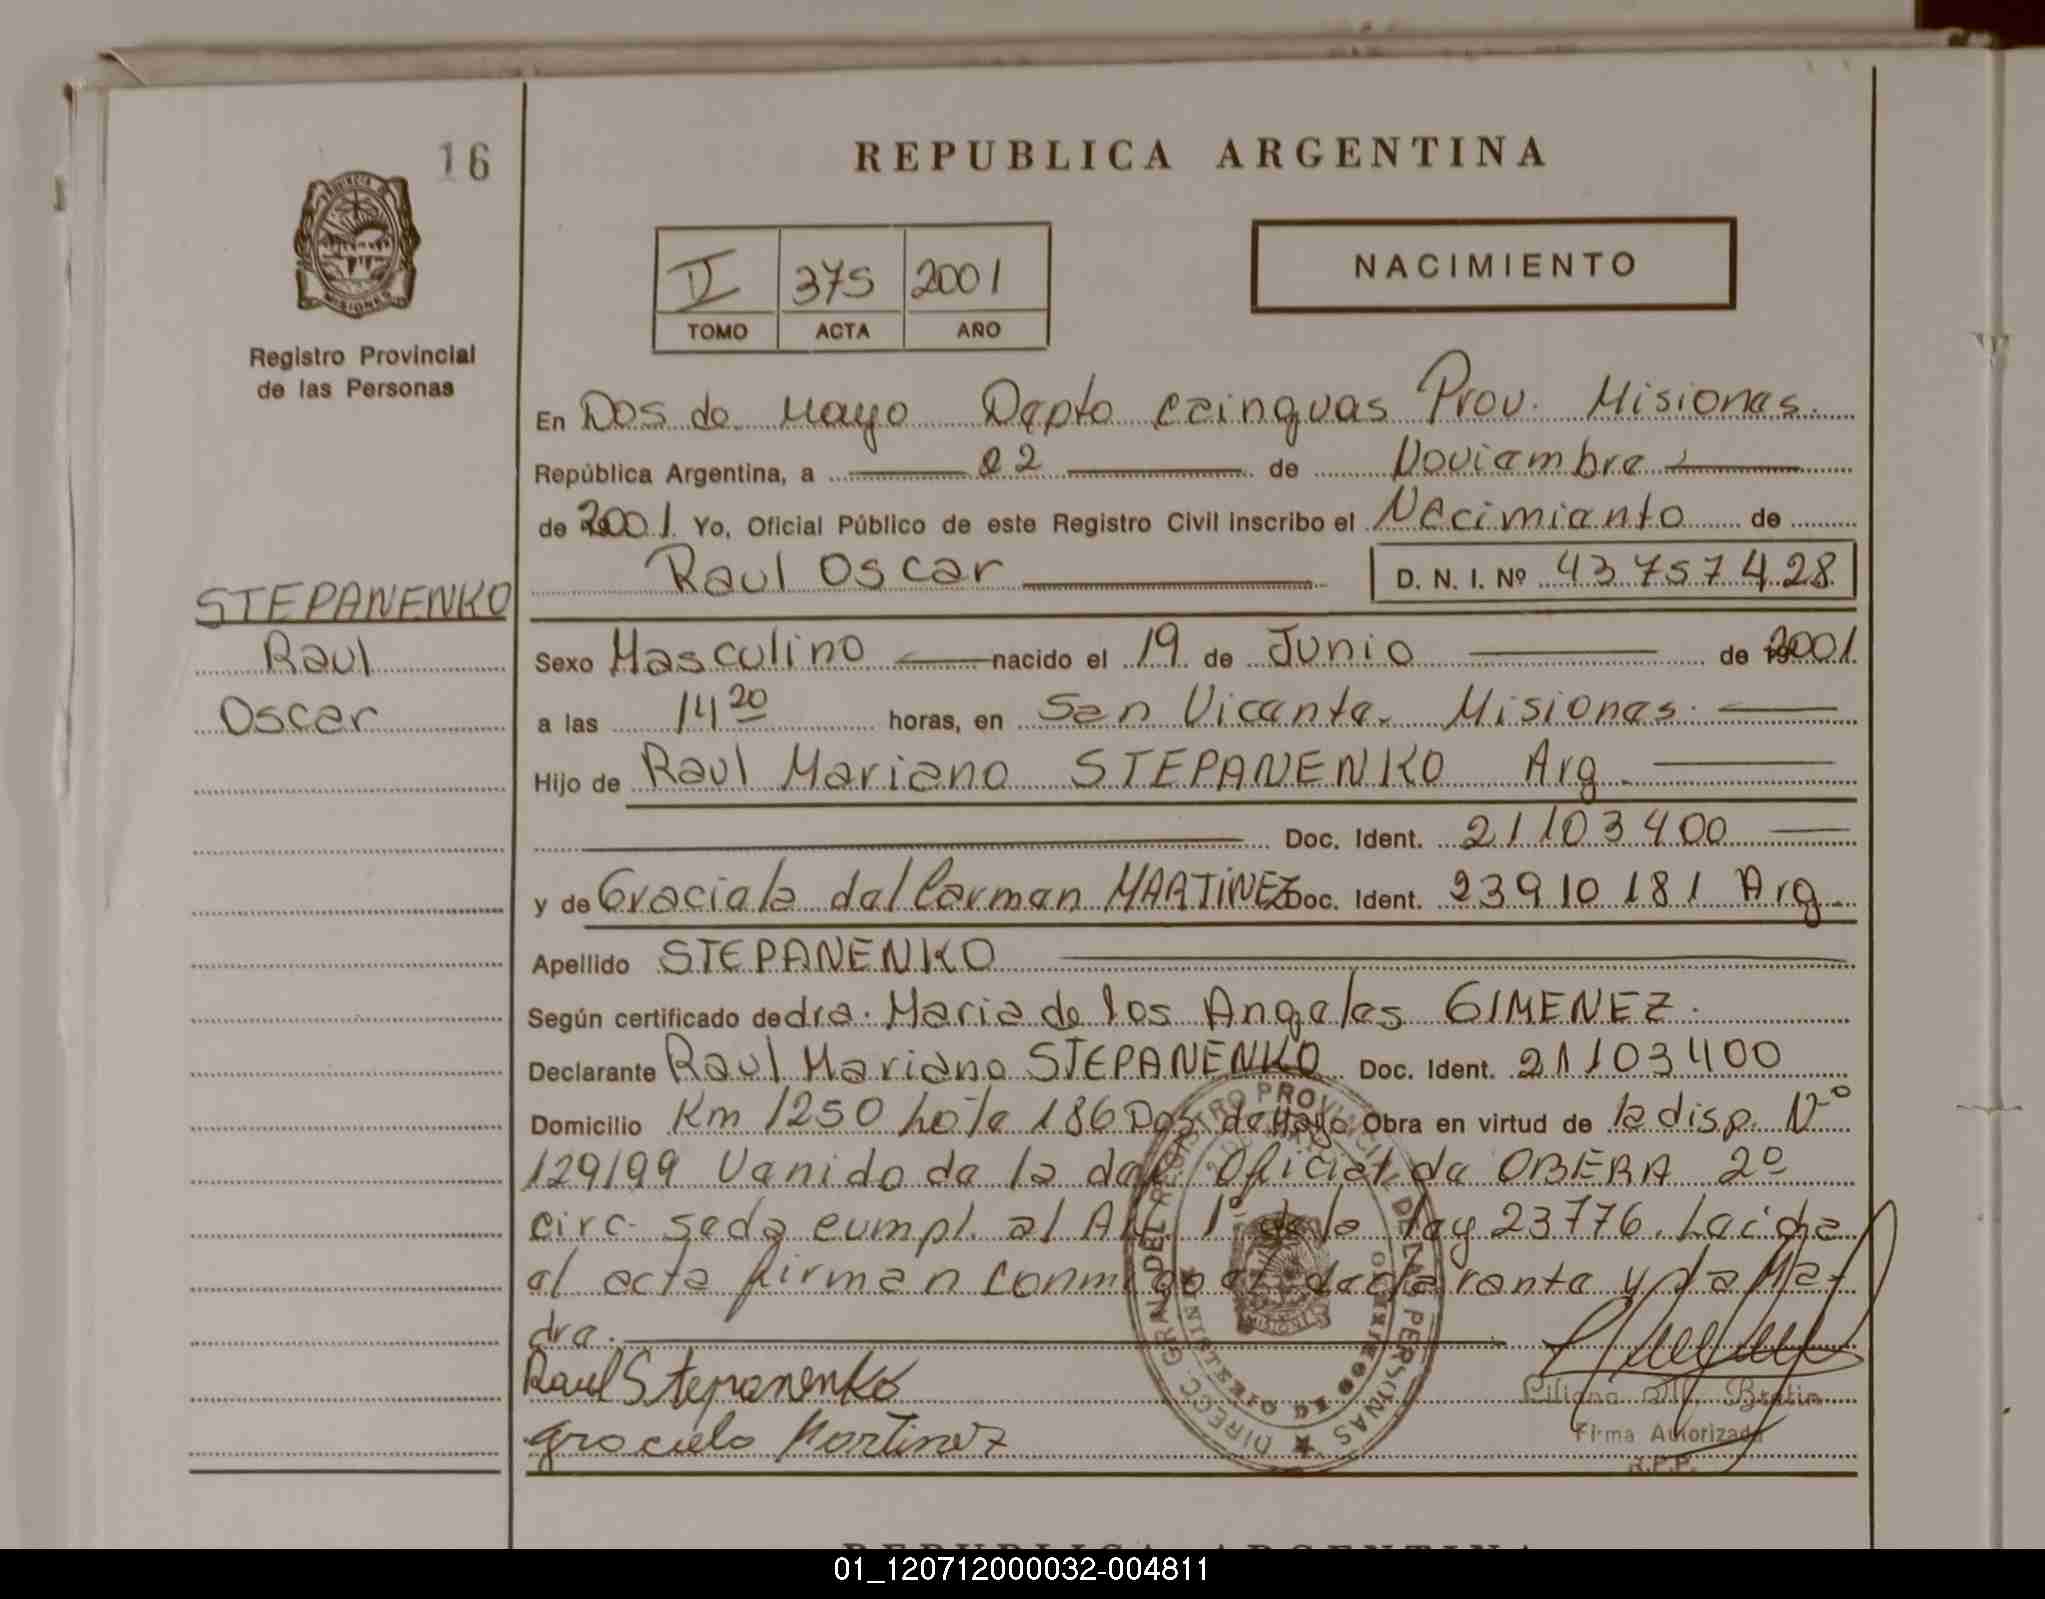 16
REPUBLICA ARGENTINA
II 375 2001
TOMO ACTA AÑO
NACIMIENTO
Registro Provincial
de las Personas
En Dos de Mayo Depto Cainguas Prov. Misiones.
República Argentina, a 02 de Noviembre
de 2001. Yo, Oficial Público de este Registro Civil inscribo el Nacimiento de
Raul Oscar D. N. I. Nº 43757428
STEPANENKO
Raul
Oscar
Sexo Masculino nacido el 19 de Junio de 2001
a las 14 20 horas, en San Vicente. Misiones.
Hijo de Raul Mariano STEPANENKO Arg.
Doc. Ident. 21103400
y de Graciela del Carmen MARTINEZ Doc. Ident. 23910181 Arg.
Apellido STEPANENKO
Según certificado de dra. Maria de los Angeles GIMENEZ.
Declarante Raul Mariano STEPANENKO Doc. Ident. 21103400
Domicilio Km 1250 Lote 186 Dos de Mayo Obra en virtud de la disp. Nº
129/99 Venido de la del. Oficial de OBERA 2º
circ. seda cumpl. al Art. 1º de la ley 23776. Leida
el acta firman conmigo el declarante y la Ma-
dre.
Raul Stepanenko
Graciela Martinez
DIRECC. GRAL. DEL REGISTRO PROVINCIAL DE LAS PERSONAS
MISIONES
Liliana
Firma Autorizada
R.P.P.
REPUBLICA ARGENTINA
01_120712000032-004811